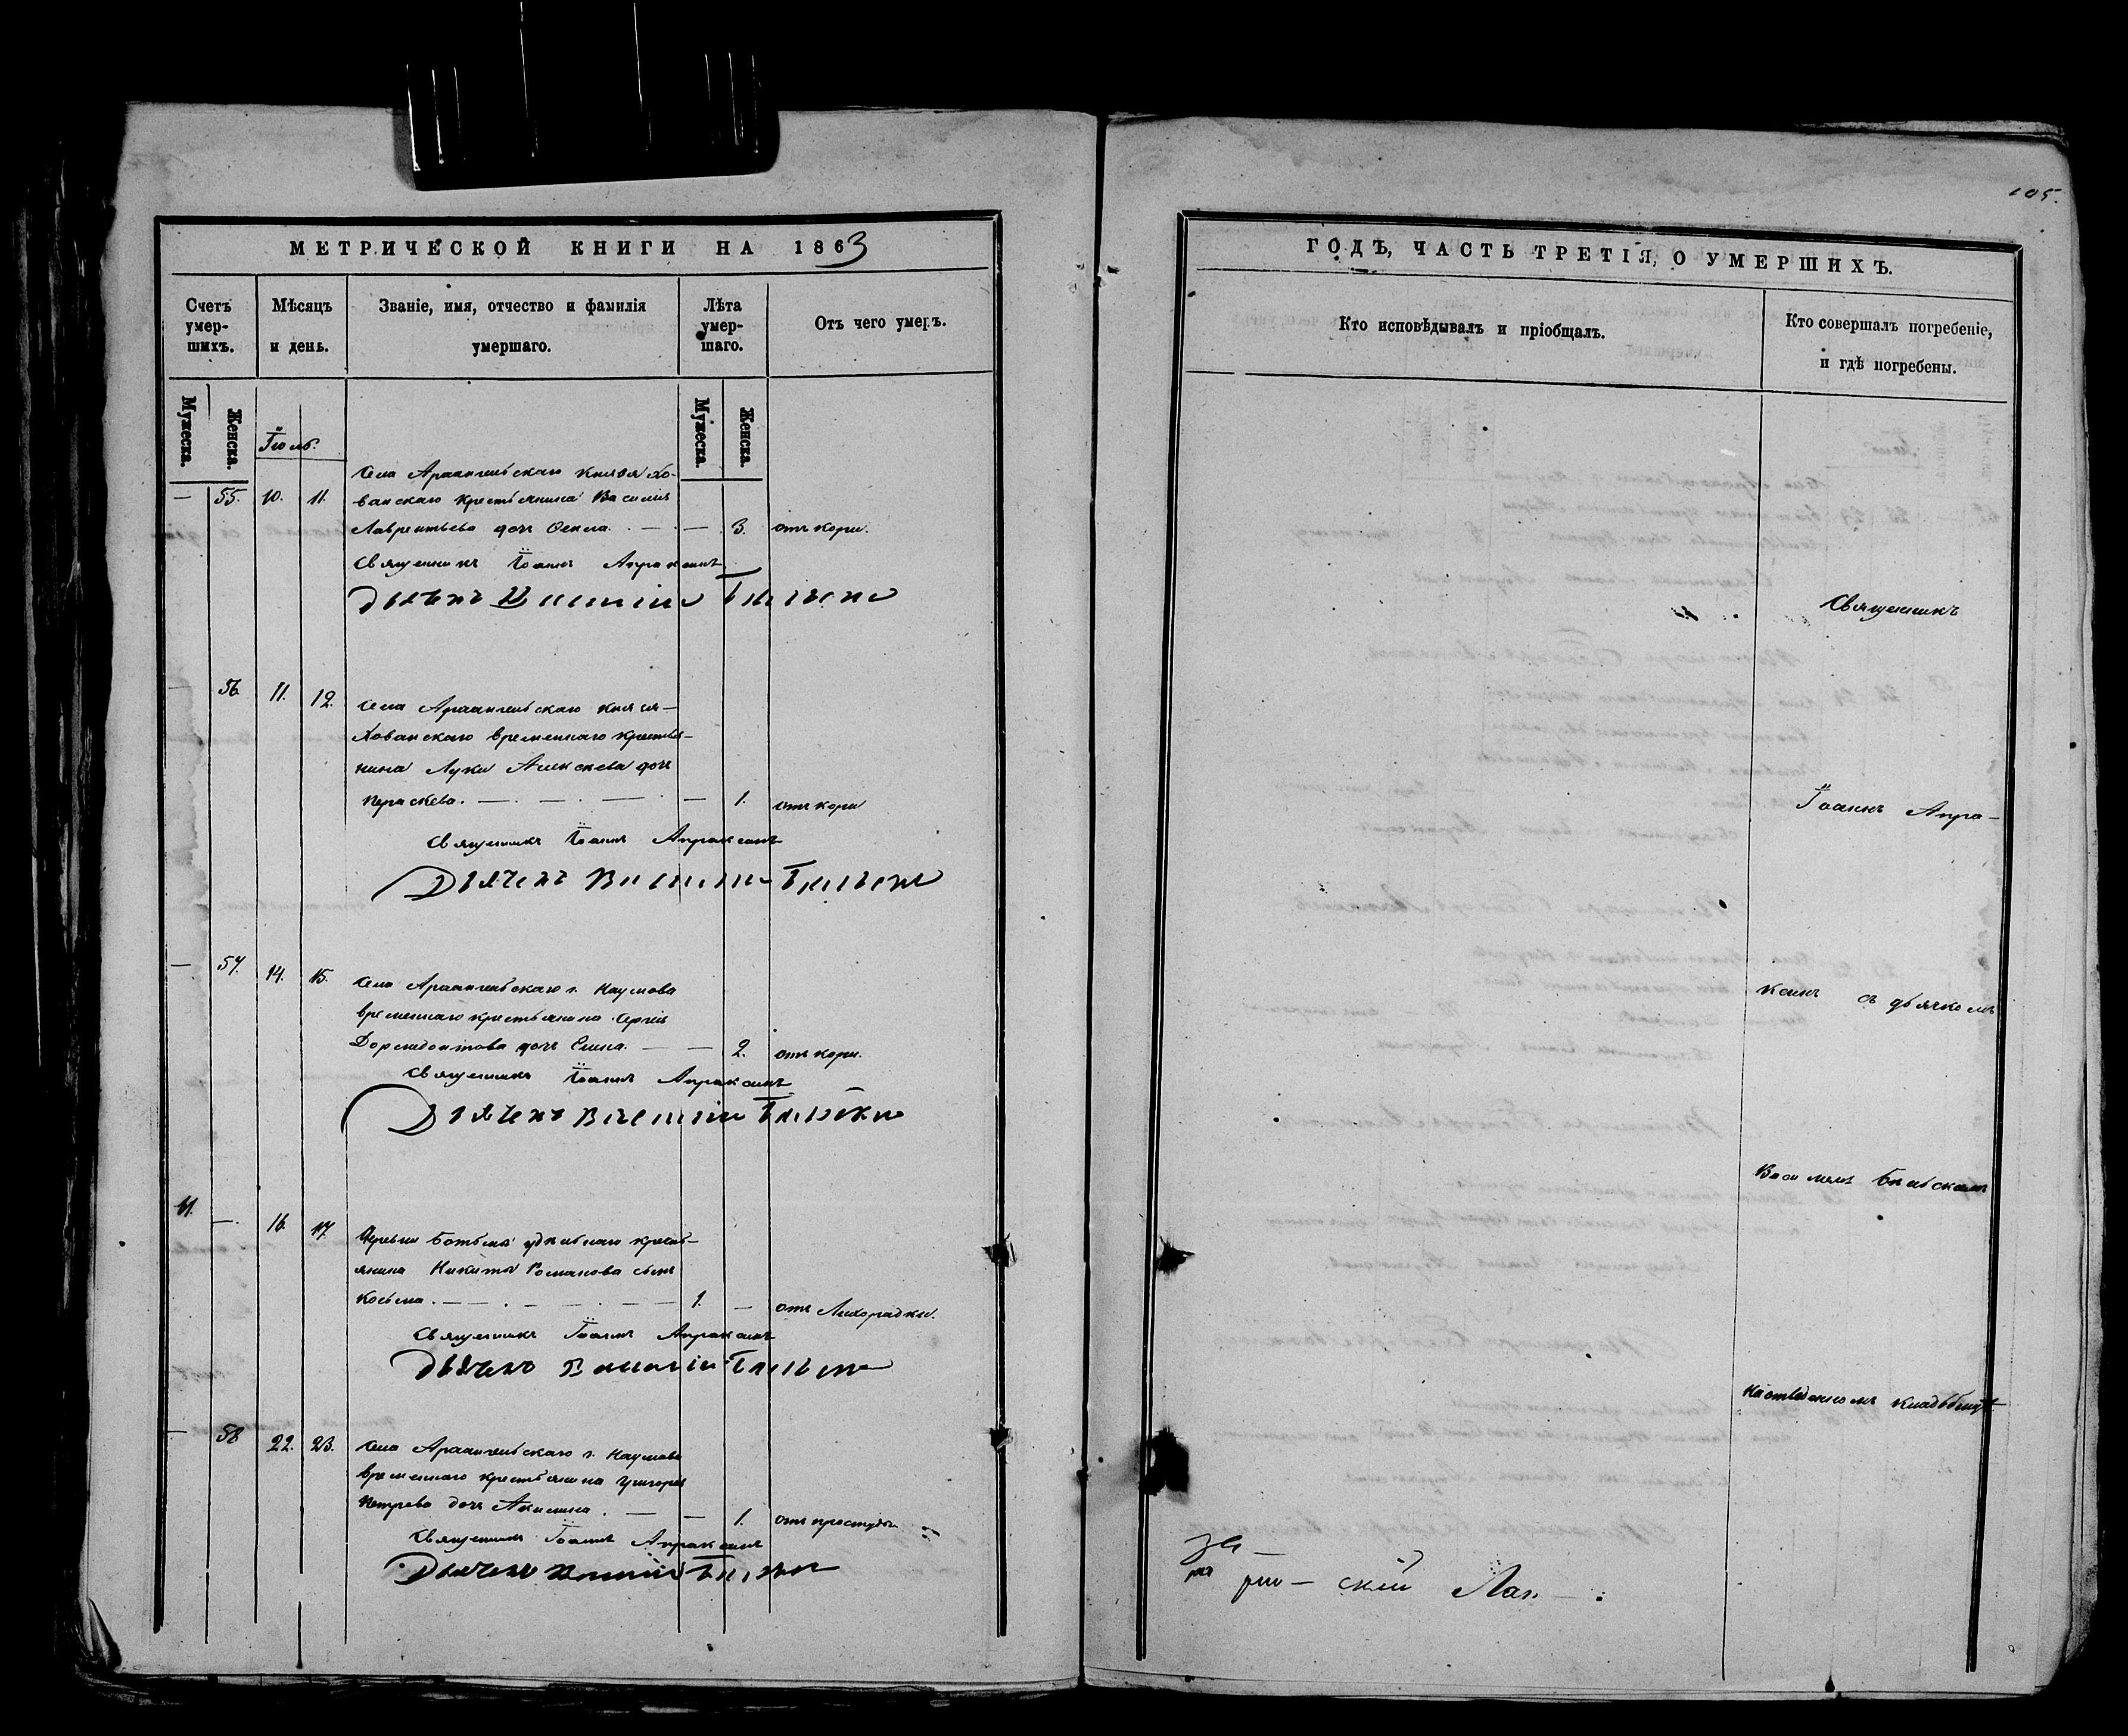 МЕТРИЧЕСКОЙ КНИГИ НА 1863
Счетъ умер-шихъ.
Мѣсяцъ и день.
Званіе, имя, отчество и фамилія умершаго.
Лѣта умер-шаго.
Отъ чего умеръ.
Мужеска.
Женска.
Мужеска.
Женска.
Іюль.
Села Архангельскаго Князя Хо-
— 55. 10. 11. ванскаго крестьянина Василія
Лаврентьева дочь Ѳекла. — — 3. отъ кори.
Священникъ Іоаннъ Апраксинъ
Дьячекъ Василій
— 56. 11. 12. Села Архангельскаго Князя
Хованскаго временнаго крестья-
нина Луки Алексѣева дочь
Параскева. — — — 1. отъ кори
Священникъ Іоаннъ Апраксинъ
Дьячекъ Василій
— 57. 14. 15. Села Архангельскаго г. Наумова
временнаго крестьянина Сергія
Дормидонтова дочь Елена. — — 2. отъ кори.
Священникъ Іоаннъ Апраксинъ
Дьячекъ Василій
41. — 16. 17. Деревни удѣльнаго кресть-
янина Никиты Романова сынъ
Косьма. — — — 1. — отъ Лихорадки.
Священникъ Іоаннъ Апраксинъ
Дьячекъ Василій
— 58 22. 23. Села Архангельскаго г. Наумова
временнаго крестьянина Григорія
Петрова дочь Акилина. — — 1. отъ простуды
Священникъ Іоаннъ Апраксинъ
Дьячекъ Василій
105.
ГОДЪ, ЧАСТЬ ТРЕТІЯ, О УМЕРШИХЪ.
Кто исповѣдывалъ и пріобщалъ.
Кто совершалъ погребеніе, и гдѣ погребены.
Священникъ
Іоаннъ Апра-
ксинъ съ дьячкомъ
Васильемъ
на отведенномъ кладбищѣ
скій